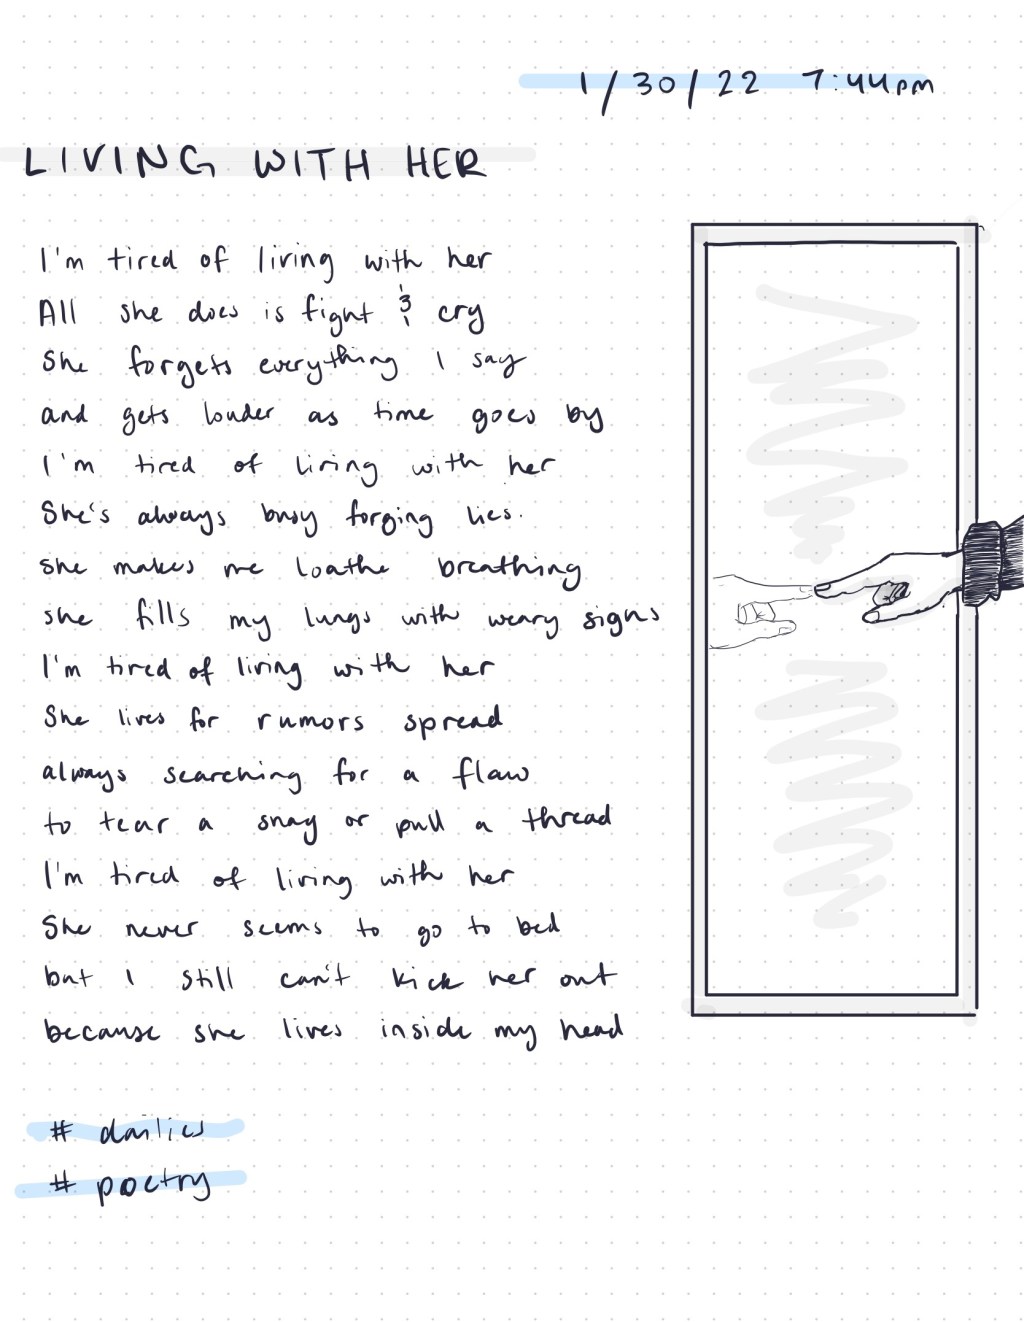 1/30/22 7:44pm
LIVING WITH HER
I'm tired of living with her
All she does is fight & cry
She forgets everything I say
and gets louder as time goes by
I'm tired of living with her
She's always busy forging lies.
she makes me loathe breathing
she fills my lungs with weary signs
I'm tired of living with her
She lives for rumors spread
always searching for a flaw
to tear a snag or pull a thread
I'm tired of living with her
She never seems to go to bed
but I still can't kick her out
because she lives inside my head
# dailies
# poetry